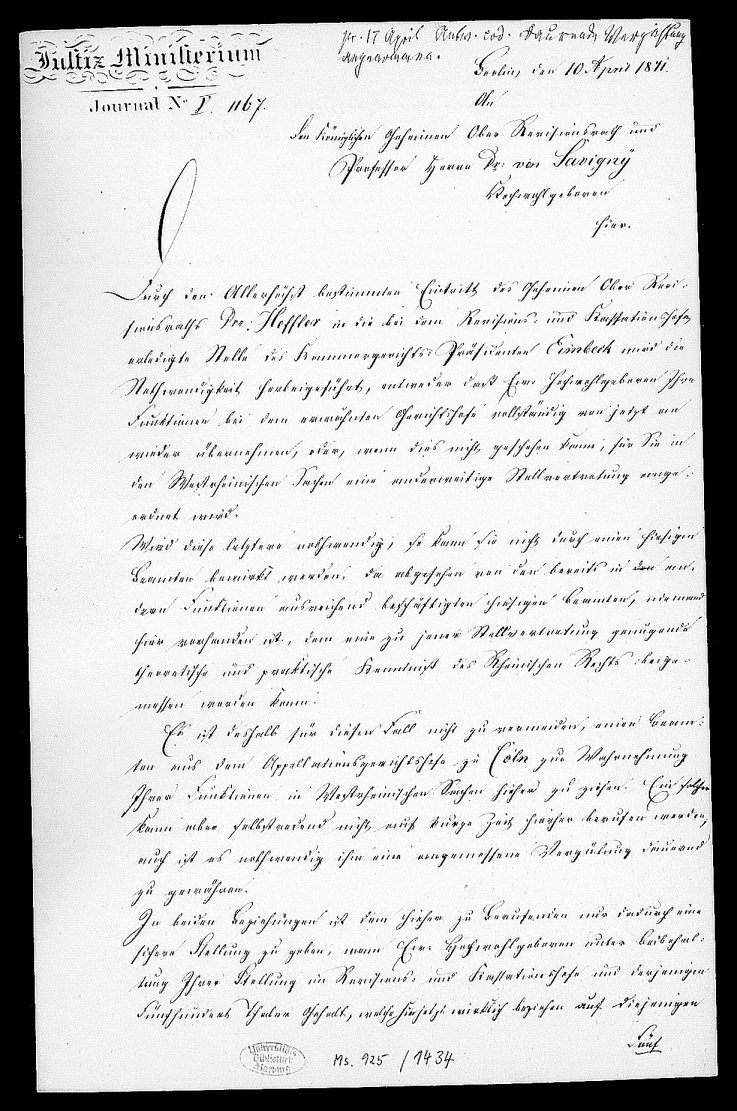 Justiz Ministerium
Journal No I. 1167.
pr. 17 April Antw. eod. dauernde Verzichtung
angenommen.
Berlin, den 10 April 1841.
An
den Königlichen Geheimen Ober Revisionsrath und
Professor Herrn Dr. von Savigny
Hochwohlgeboren
hier.
Durch den Allerhöchst bestimmten Eintritt des Geheimen Ober Revi-
sionsraths Dr. Heffter in die bei dem Revisions- und Kassationshofe
erledigte Stelle des Kammergerichts-Präsidenten Eimbeck wird die
Nothwendigkeit herbeigeführt, entweder daß Ew. Hochwohlgeboren Ihre
Funktionen bei dem erwähnten Gerichtshofe vollständig von jetzt an
wieder übernehmen, oder, wenn dies nicht geschehen kann, für Sie in
den Westrheinischen Sachen eine anderweitige Stellvertretung ange-
ordnet wird.
Wird diese letztere nothwendig, so kann sie nicht durch einen hiesigen
Beamten bewirkt werden, da abgesehen von den bereits in den an-
dern Funktionen ausreichend beschäftigten hiesigen Beamten, niemand
hier vorhanden ist, dem eine zu jener Stellvertretung genügende
theoretische und praktische Kenntniß des Rheinischen Rechts beige-
messen werden kann.
Es ist deshalb für diesen Fall nicht zu vermeiden, einen Beam-
ten aus dem Appellationsgerichtshofe zu Cöln zur Wahrnehmung
Ihrer Funktionen in Westrheinischen Sachen hieher zu ziehen. Ein solcher
kann aber selbstredend nicht auf kurze Zeit hierher berufen werden,
auch ist es nothwendig ihm eine angemessene Vergütung dauernd
zu gewähren.
In beiden Beziehungen ist dem hieher zu Berufenden nur dadurch eine
sichere Stellung zu geben, wenn Ew. Hochwohlgeboren unter Beibehal-
tung Ihrer Stellung im Revisions- und Kassationshofe und derjenigen
Fünfhundert Thaler Gehalt, welche Sie jetzt wirklich beziehen auf diejenigen
Fünf
Universitäts
Bibliothek
Marburg
Ms. 925 / 1434